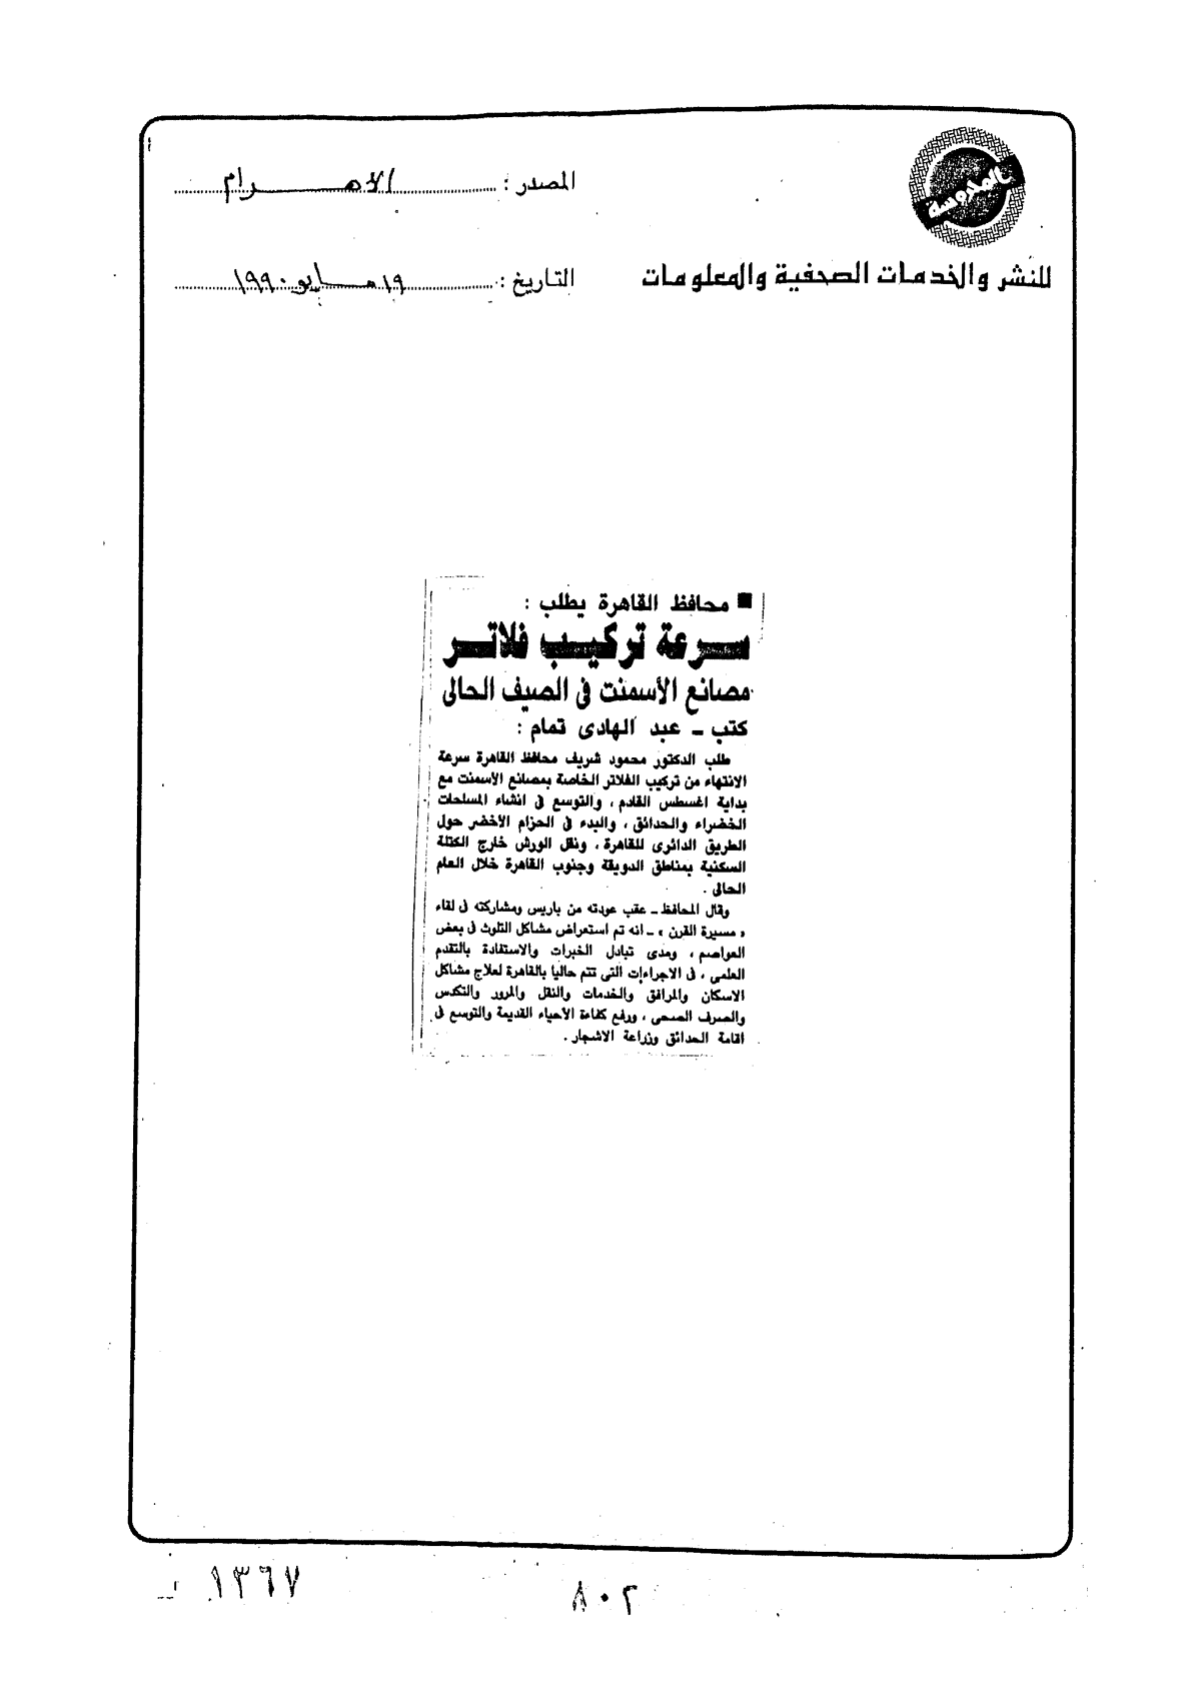 المصدر : الاهرام
للنشر والخدمات الصحفية والمعلومات
التاريخ : ١٩ مايو ١٩٩٠
■ محافظ القاهرة يطلب :
سرعة تركيب فلاتر
مصانع الأسمنت فى الصيف الحالى
كتب ــ عبد الهادى تمام :
طلب الدكتور محمود شريف محافظ القاهرة سرعة
الانتهاء من تركيب الفلاتر الخاصة بمصانع الأسمنت مع
بداية اغسطس القادم ، والتوسع فى انشاء المسلحات
الخضراء والحدائق ، والبدء فى الحزام الأخضر حول
الطريق الدائرى للقاهرة ، ونقل الورش خارج الكتلة
السكنية بمناطق الدويقة وجنوب القاهرة خلال العام
الحالى .
وقال المحافظ ــ عقب عودته من باريس ومشاركته فى لقاء
« مسيرة القرن » ــ انه تم استعراض مشاكل التلوث فى بعض
العواصم ، ومدى تبادل الخبرات والاستفادة بالتقدم
العلمى ، فى الاجراءات التى تتم حاليا بالقاهرة لعلاج مشاكل
الاسكان والمرافق والخدمات والنقل والمرور والتكدس
والصرف الصحى ، ورفع كفاءة الأحياء القديمة والتوسع فى
اقامة الحدائق وزراعة الاشجار .
١٣٦٧
٨٠٢